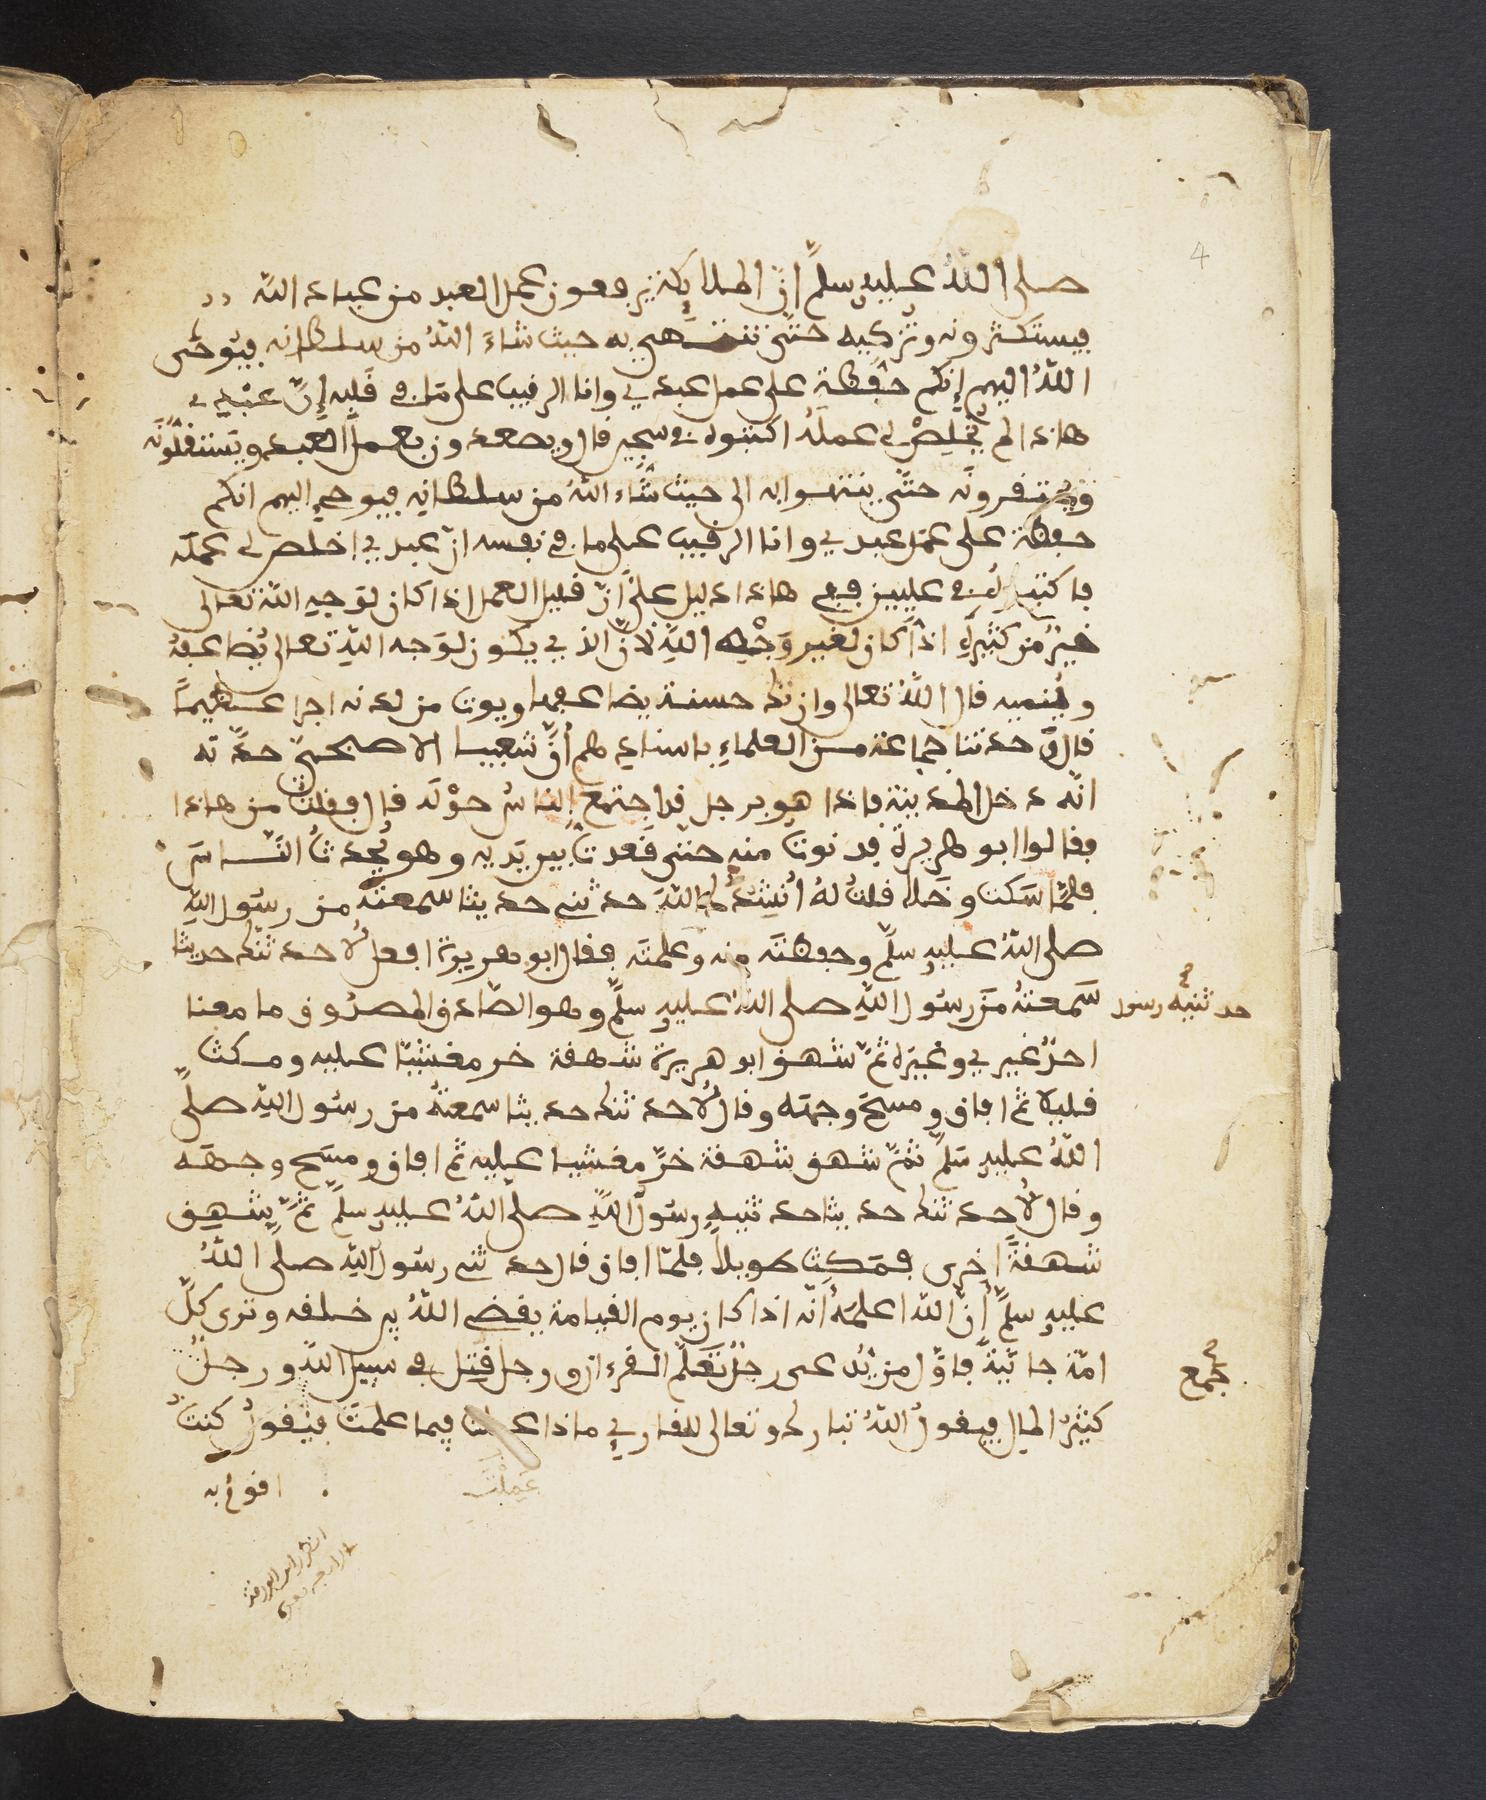 4
صلى الله عليه سلم ان الملايكة يرفعون عمل العبد من عباد الله
فيستكثرونه وتزكيه حتى تنتهي به حيث شاء الله من سلطانه فيوحى
الله اليهم إنكم حفظة على عمل عبدي وانا الرقيب على ما في قلبه إن عبدي
هاذا لم يخلص لي عمله اكتبوه في سجين قال ويصعدون بعمل العبد ويستقلونه
ويحتقرونه حتى ينتهوا به الى حيث شاء الله من سلطانه فيوحي اليهم انكم
حفظة على عمل عبدي وانا الرقيب على ما في نفسه ان عبدي اخلص لي عمله
فاكتبوه في عليين ففي هاذا دليل على ان قليل العمل اذا كان لوجه الله تعالى
خير من كثيره اذا كان لغير وجه الله لان الذي يكون لوجه الله تعالى يضاعفه
وينميه قال الله تعالى وان تك حسنة يضاعفها ويوت من لدنه اجرا عظيما
قال حدثنا جماعة من العلماء باسنادهم أن شعيبا الاصبحي حدثه
انه دخل المدينة فاذا هو برجل قد اجتمع الناس حوله قال فقلت من هاذا
فقالوا ابو هريرة فدنوت منه حتى قعدت بين يديه وهو يحدث الناس
فلما سكت وخلا قلت له أنشدك الله حدثني حديثا سمعته من رسول الله
صلى الله عليه سلم وحفظته منه وعلمته فقال ابو هريرة افعل لاحدثنك حديثا
سمعته من رسول الله صلى الله عليه سلم وهو الصادق المصدوق ما معنا
حدثنيه رسول
احد غيري وغيره ثم شهق ابو هريرة شهقة خر مغشيا عليه ومكث
قليلا ثم افاق ومسح وجهه وقال لاحدثنك حديثا سمعته من رسول الله صلى
الله عليه سلم ثم شهق شهقة خر مغشيا عليه ثم افاق ومسح وجهه
وقال لاحدثنك حديثا حدثنيه رسول الله صلى الله عليه سلم ثم يشهق
شهقة اخرى فمكث طويلا فلما افاق قال حدثني رسول الله صلى الله
عليه سلم أن الله اعلمه أنه اذا كان يوم القيامة يقضي الله بين خلقه وترى كل
امة جاثية فاول من يدعى رجل تعلم القرءان ورجل قتل في سبيل الله ورجل
جمع
كثير المال فيقول الله تبارك وتعالى للقاري ماذا عملت فيما علمت فيقول كنت
عملت
اقوم به